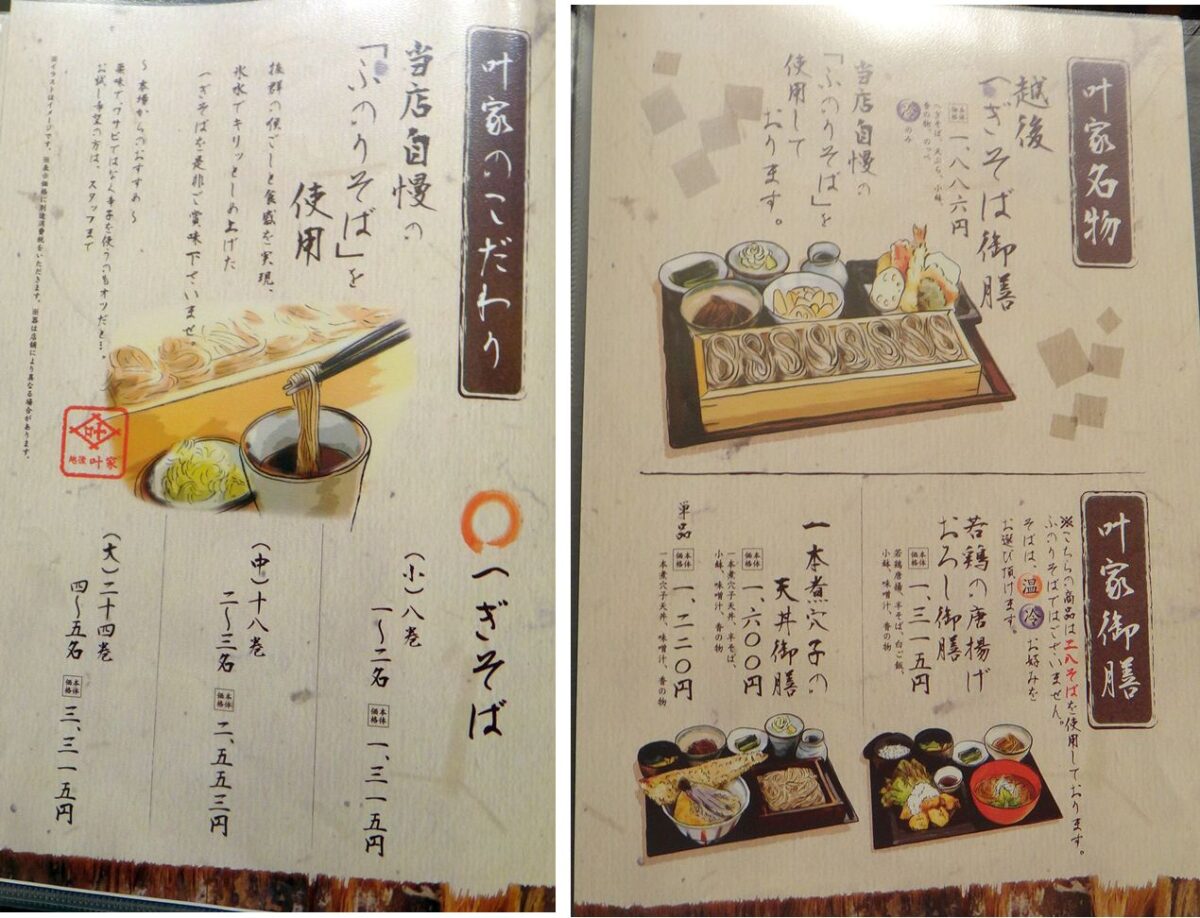 叶家のこだわり
当店自慢の
「ふのりそば」を
使用
抜群の喉ごしと食感を実現、
氷水でキリッとしめ上げた
へぎそばを是非ご賞味下さいませ。
～本場からのおすすめ～
薬味で、ワサビではなくからし辛子を使うのもオツだと…。
お試し希望の方は、スタッフまで
※イラストはイメージです。※表示価格に別途消費税をいただきます。※器は店舗により異なる場合があります。
叶
越後 叶家
へぎそば
（小）八巻
一～二名
本体価格 一、三一五円
（中）十八巻
二～三名
本体価格 二、五五三円
（大）二十四巻
四～五名
本体価格 三、三一五円
叶家名物
越後
へぎそば御膳
本体価格 一、八八六円
へぎそば、天ぷら、小鉢、
香の物、のっぺ
冷 のみ
当店自慢の
「ふのりそば」を
使用して
おります。
叶家御膳
※こちらの商品は二八そばを使用しております。
ふのりそばではございません。
そばは、温 冷 お好みを
お選び頂けます。
若鶏の唐揚げ
おろし御膳
本体価格 一、三一五円
若鶏唐揚、半そば、白ご飯、
小鉢、味噌汁、香の物
一本煮穴子の
天丼御膳
本体価格 一、六〇〇円
一本煮穴子天丼、半そば、
小鉢、味噌汁、香の物
単品
本体価格 一、二二〇円
一本煮穴子天丼、味噌汁、香の物